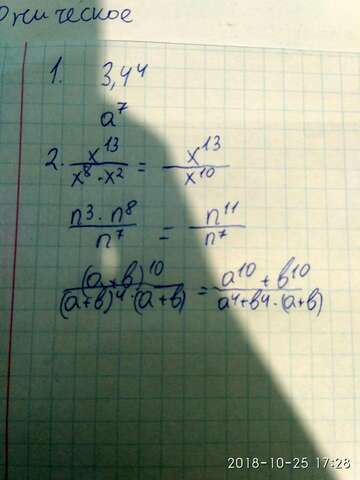 1. 3,4⁴
a⁷
2. x¹³/x⁸·x² = x¹³/x¹⁰
n³·n⁸/n⁷ = n¹¹/n⁷
(a+b)¹⁰/(a+b)⁴·(a+b) = a¹⁰+b¹⁰/a⁴+b⁴·(a+b)
2018-10-25 17:28